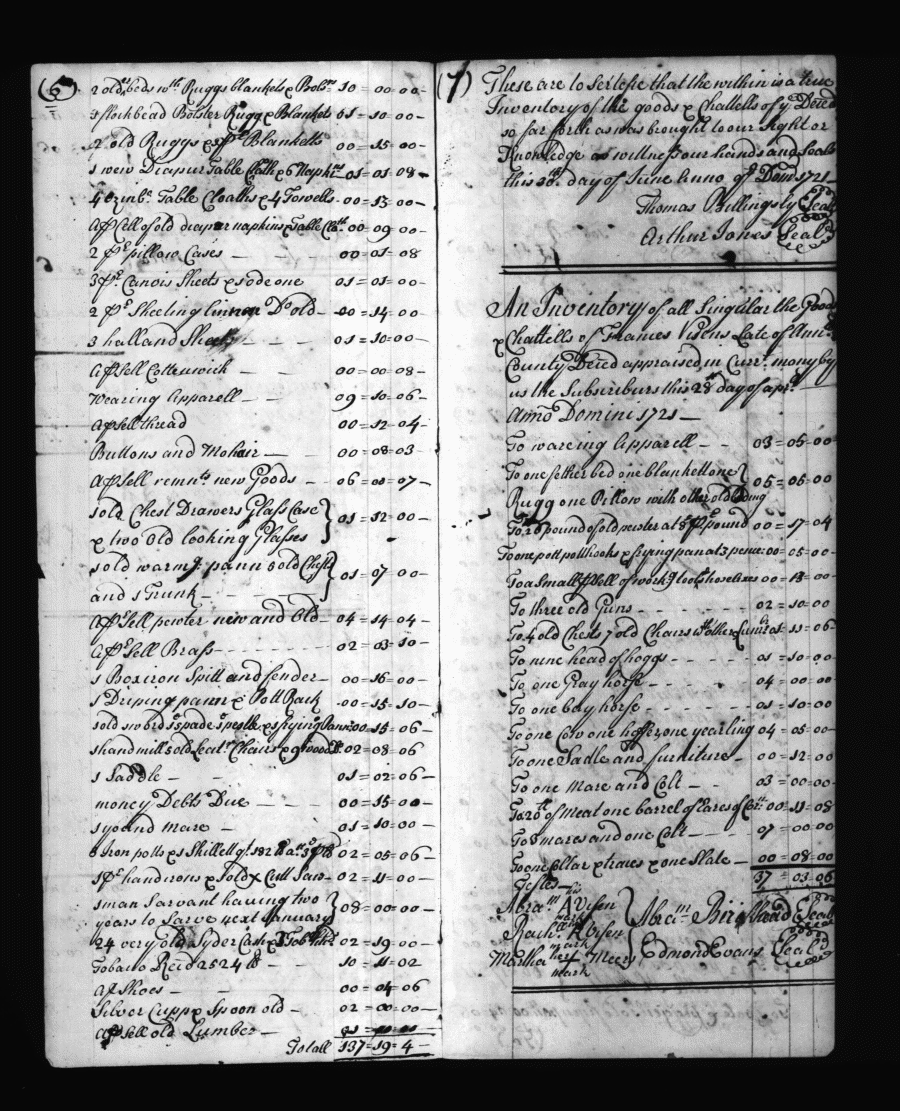 (6)
2 old beds wth Ruggs blankets & Bolsrs 10 = 00 = 00 -
1 flockbead Bolster Rugg & Blankets 01 = 10 = 00 -
2 old Ruggs & Blanketts 00 = 15 = 00 -
1 new Diapur Table Cloth & 6 Napkins 01 = 01 = 08 -
4 Table Cloaths & 4 Towells 00 = 13 = 00 -
old diaper napkins & Table Cloth 00 = 09 = 00 -
2 pr pillow Cases - - 00 = 01 = 08
3 pr Canvis Sheets & 1 ode one 01 = 01 = 00 -
2 pr Sheeting linnen Do old - 00 = 14 = 00 -
3 halland Sheets - - - 01 = 10 = 00 -
a psell Cottenwick - - 00 = 00 = 08 -
Wearing Apparell - - 09 = 10 = 06 -
a psell thread 00 = 12 = 04 -
Buttons and Mohair - - 00 = 08 = 03 -
a psell remnts new Goods - 06 = 00 = 07 -
1 old Chest Drawers Glass Case
& two Old looking Glasses } 01 = 12 = 00 -
1 old warmg pann 5 old Chests
and 1 Trunk - } 01 = 07 = 00 -
a psell pewter new and Old - 04 = 14 = 04 -
a psell Brass - - - - 02 = 03 = 10 -
1 Box iron Spitt and fender - 00 = 16 = 00 -
1 Driping pann & Pott Rack - 00 = 15 = 10 -
1 old sword 1 spade 1 pestle & 1 frying pann 00 = 15 = 06 -
1 hand mill 5 old Leatr Chairs & 9 wood Do 02 = 08 = 06
1 Saddle - - 01 = 02 = 06 -
money Debts Due - - - 00 = 15 = 00 -
1 yound mare - 01 = 10 = 00 -
Iron potts & 1 Skillett qt 182 lb at 3d p lb 02 = 05 = 06 -
1 pr handirons & 1 old X Cutt Saw - 02 = 11 = 00 -
1 man Sarvant having two
years to Sarve next January } 08 = 00 = 00 -
24 very old Syder Cask & 02 = 19 = 00 -
Tobaco Recd 2524 lb - 10 = 11 = 02
Shoes - - 00 = 04 = 06
Silver Cupp & Spoon old - 02 = 00 = 00 -
a psell old Lumber -
Totall 137 = 19 = 4 -
(7)
These are to Sertefie that the within is a true
Inventory of the goods & Chattells of ye Deced
so far forth as was brought to our Sight or
Knowledge as wittness our hands and Seals
this day of June Anno qe Dom 1721
Thomas Billingsly Seal
Arthur Jones Seald
An Inventory of all Singular the Goods
& Chattells of Frances Late of
County Deced appraised in Currt mony by
us the Subscriburs this 28 day of apr
Anno Domini 1721 -
To wareing Apparell - - 03 = 05 = 00
To one fether bed one blankett one
Rugg one Pillow with other old Beding } 05 = 06 = 00
To 26 pound of old pewter at 8d p pound 00 = 17 = 04
To one pott potthooks & frying pan at 3 penue 00 = 05 = 00 -
To a Small psell of workg tools hoes axes 00 = 13 = 00
To three old Guns - - - - 02 = 10 = 00
To 4 old Chests 7 old Chairs wth other Lumbr 01 = 11 = 06
To nine head of hoggs - - - - 01 = 10 = 00
To one Gray horse - - - - 04 = 00 = 00
To one bay horse - - - - 01 = 10 = 00
To one Cow one heffer one yearling 04 = 05 = 00
To one Sadle and furniture - 00 = 12 = 00
To one Mare and Colt - - 03 = 00 = 00
To 20 lb of Meat one barrel of Eares of Corn 00 = 11 = 08
To 3 mares and one Colt - - - 07 = 00 = 00
To one Collar & traces & one Slate - 00 = 08 = 00
37 = 03 = 06
Testes -
Abram his A mark
Rach: mark
Martha her mark Meers
Abram Seal
Edmond Evans Seald